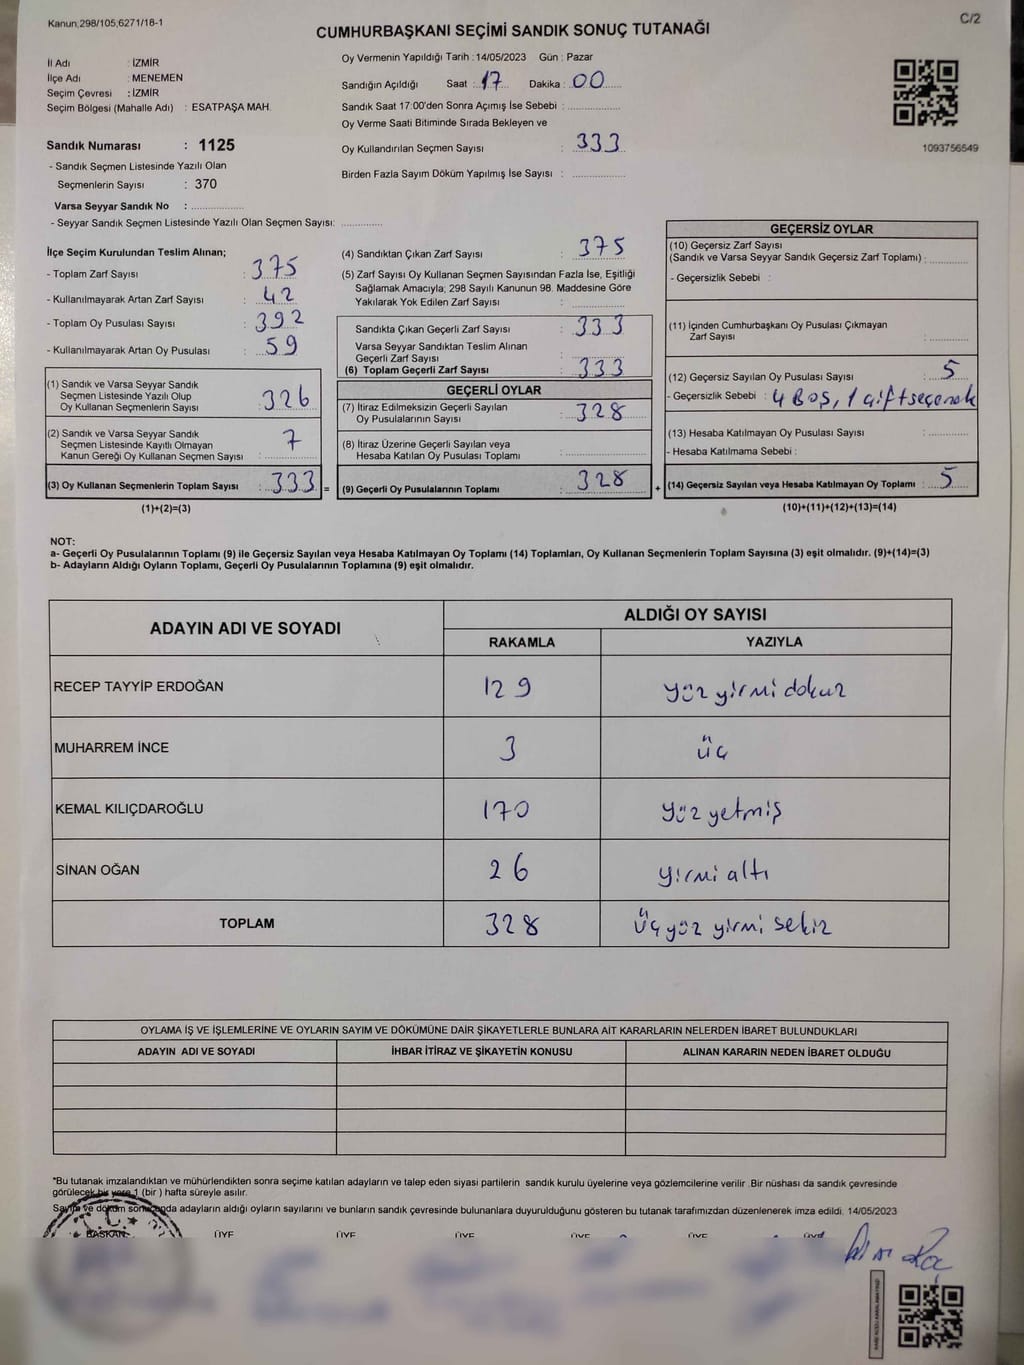 Kanun;298/105,6271/18-1
C/2
CUMHURBAŞKANI SEÇİMİ SANDIK SONUÇ TUTANAĞI
İl Adı : İZMİR
İlçe Adı : MENEMEN
Seçim Çevresi : İZMİR
Seçim Bölgesi (Mahalle Adı) : ESATPAŞA MAH.
Oy Vermenin Yapıldığı Tarih : 14/05/2023 Gün : Pazar
Sandığın Açıldığı Saat : 17 Dakika : 00
Sandık Saat 17:00'den Sonra Açımış İse Sebebi :
Oy Verme Saati Bitiminde Sırada Bekleyen ve
Oy Kullandırılan Seçmen Sayısı : 333
Birden Fazla Sayım Döküm Yapılmış İse Sayısı :
1093756549
Sandık Numarası : 1125
- Sandık Seçmen Listesinde Yazılı Olan
Seçmenlerin Sayısı : 370
Varsa Seyyar Sandık No :
- Seyyar Sandık Seçmen Listesinde Yazılı Olan Seçmen Sayısı:
İlçe Seçim Kurulundan Teslim Alınan;
- Toplam Zarf Sayısı : 375
- Kullanılmayarak Artan Zarf Sayısı : 42
- Toplam Oy Pusulası Sayısı : 392
- Kullanılmayarak Artan Oy Pusulası : 59
(1) Sandık ve Varsa Seyyar Sandık
Seçmen Listesinde Yazılı Olup
Oy Kullanan Seçmenlerin Sayısı : 326
(2) Sandık ve Varsa Seyyar Sandık
Seçmen Listesinde Kayıtlı Olmayan
Kanun Gereği Oy Kullanan Seçmen Sayısı : 7
(3) Oy Kullanan Seçmenlerin Toplam Sayısı : 333 =
(1)+(2)=(3)
(4) Sandıktan Çıkan Zarf Sayısı : 375
(5) Zarf Sayısı Oy Kullanan Seçmen Sayısından Fazla İse, Eşitliği
Sağlamak Amacıyla; 298 Sayılı Kanunun 98. Maddesine Göre
Yakılarak Yok Edilen Zarf Sayısı :
Sandıkta Çıkan Geçerli Zarf Sayısı : 333
Varsa Seyyar Sandıktan Teslim Alınan
Geçerli Zarf Sayısı :
(6) Toplam Geçerli Zarf Sayısı : 333
GEÇERLİ OYLAR
(7) İtiraz Edilmeksizin Geçerli Sayılan
Oy Pusulalarının Sayısı : 328
(8) İtiraz Üzerine Geçerli Sayılan veya
Hesaba Katılan Oy Pusulası Toplamı :
(9) Geçerli Oy Pusulalarının Toplamı : 328 +
GEÇERSİZ OYLAR
(10) Geçersiz Zarf Sayısı
(Sandık ve Varsa Seyyar Sandık Geçersiz Zarf Toplamı) :
- Geçersizlik Sebebi :
(11) İçinden Cumhurbaşkanı Oy Pusulası Çıkmayan
Zarf Sayısı :
(12) Geçersiz Sayılan Oy Pusulası Sayısı : 5
- Geçersizlik Sebebi : 4 BOŞ, 1 çift seçenek
(13) Hesaba Katılmayan Oy Pusulası Sayısı :
- Hesaba Katılmama Sebebi :
(14) Geçersiz Sayılan veya Hesaba Katılmayan Oy Toplamı : 5
(10)+(11)+(12)+(13)=(14)
NOT:
a- Geçerli Oy Pusulalarının Toplamı (9) ile Geçersiz Sayılan veya Hesaba Katılmayan Oy Toplamı (14) Toplamları, Oy Kullanan Seçmenlerin Toplam Sayısına (3) eşit olmalıdır. (9)+(14)=(3)
b- Adayların Aldığı Oyların Toplamı, Geçerli Oy Pusulalarının Toplamına (9) eşit olmalıdır.
ADAYIN ADI VE SOYADI
ALDIĞI OY SAYISI
RAKAMLA YAZIYLA
RECEP TAYYİP ERDOĞAN 129 yüz yirmi dokuz
MUHARREM İNCE 3 üç
KEMAL KILIÇDAROĞLU 170 yüz yetmiş
SİNAN OĞAN 26 yirmi altı
TOPLAM 328 üç yüz yirmi sekiz
OYLAMA İŞ VE İŞLEMLERİNE VE OYLARIN SAYIM VE DÖKÜMÜNE DAİR ŞİKAYETLERLE BUNLARA AİT KARARLARIN NELERDEN İBARET BULUNDUKLARI
ADAYIN ADI VE SOYADI İHBAR İTİRAZ VE ŞİKAYETİN KONUSU ALINAN KARARIN NEDEN İBARET OLDUĞU
*Bu tutanak imzalandıktan ve mühürlendikten sonra seçime katılan adayların ve talep eden siyasi partilerin sandık kurulu üyelerine veya gözlemcilerine verilir .Bir nüshası da sandık çevresinde
görülecek bir yere 1 (bir ) hafta süreyle asılır.
Sayım ve döküm sonucunda adayların aldığı oyların sayılarını ve bunların sandık çevresinde bulunanlara duyurulduğunu gösteren bu tutanak tarafımızdan düzenlenerek imza edildi. 14/05/2023
T.C.
BAŞKAN ÜYE ÜYE ÜYE ÜYE ÜYE ÜYE